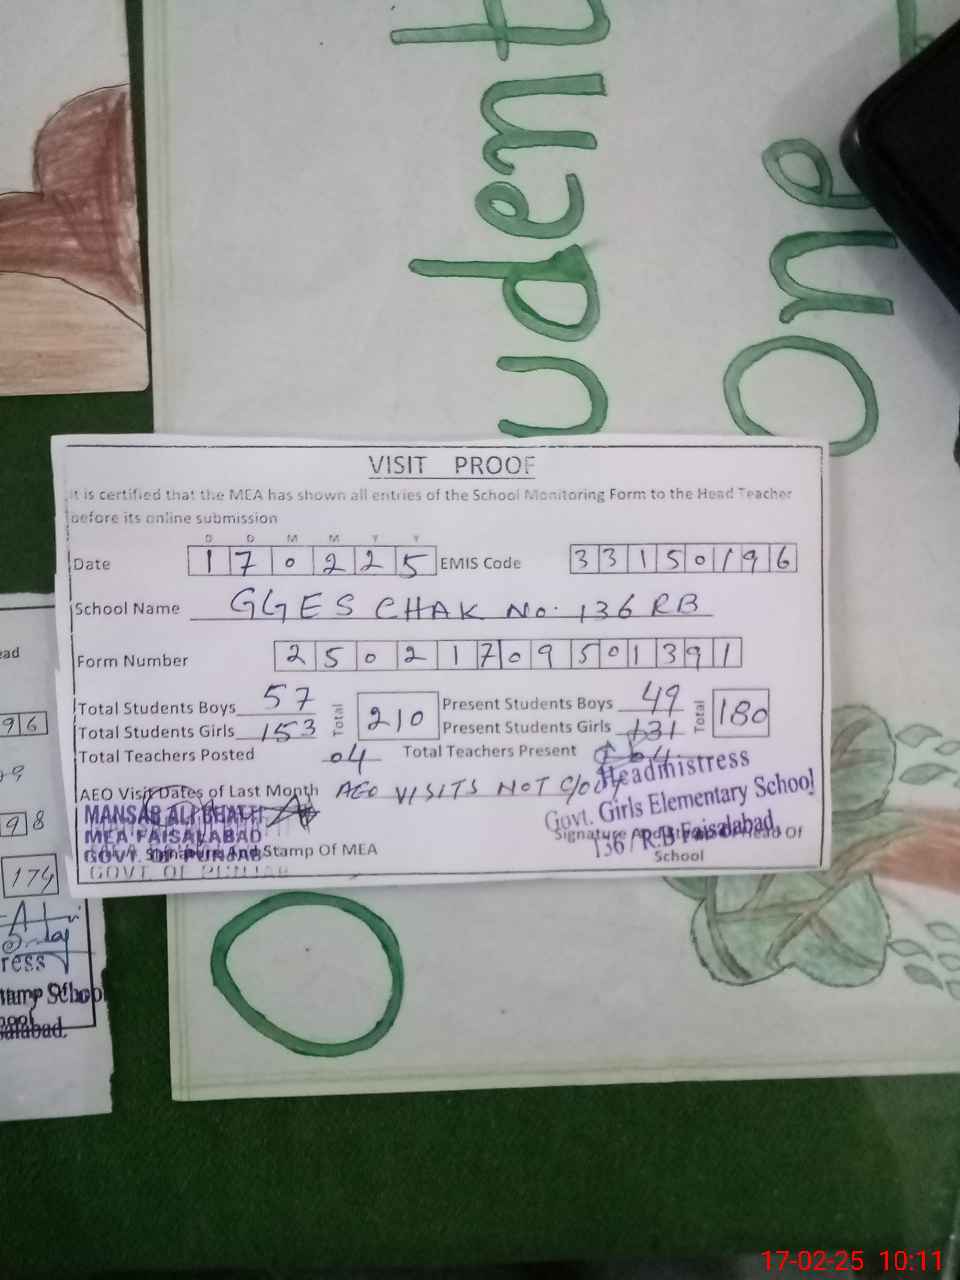 Student
One
VISIT PROOF
It is certified that the MEA has shown all entries of the School Monitoring Form to the Head Teacher
before its online submission
D D M M Y Y
Date 170225 EMIS Code 33150196
School Name GGES CHAK No. 136 RB
Form Number 25021709501391
Total Students Boys 57 Total 210 Present Students Boys 49 Total 180
Total Students Girls 153 Present Students Girls 131
Total Teachers Posted 04 Total Teachers Present 04
AEO Visit Dates of Last Month AEO VISITS NOT
MANSAB ALI BHATTI
MEA FAISALABAD
GOVT. OF PUNJAB
And Stamp Of MEA
GOVT OF PUNJAB
Headmistress
Govt. Girls Elementary School
136 / R.B Faisalabad
Signature And Head Of
School
ead
96
98
174
ress
17-02-25 10:11